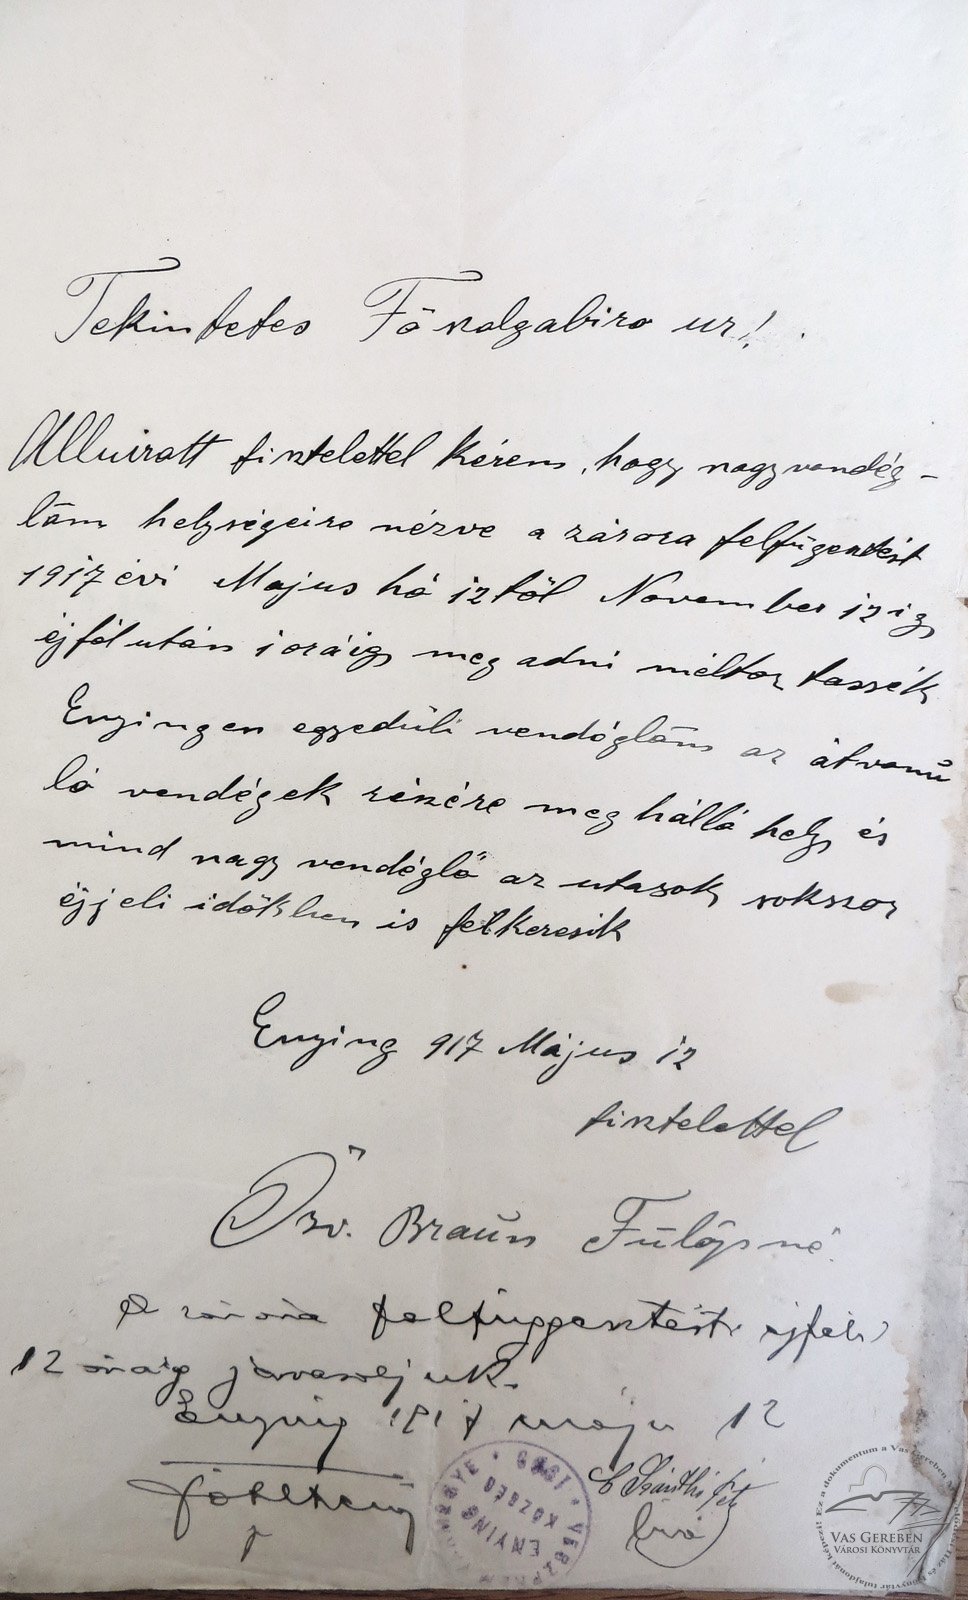 Tekintetes Fő szolgabiro ur!
Alluiratt tisztelettel kérem, hogy nagyvendég-
lőm helységeire nézve a záróra felfügesztést
1917 évi Majus hó 12től November 12ig
éjfél után 1 oráig meg adni méltoz tassék
Enyingen egyedüli vendéglőm az átvonú
ló vendégek részére meg hálló hely és
mind nagy vendéglő az utazok sokszor
éjjeli időkben is felkeresik
Enying 917 Május 12
tisztelettel
Özv. Braun Fülöpné
A záróra felfüggesztést éjféli
12 óráig javasoljuk.
Enying 1917 május 12
biró
VESZPRÉM
ENYING
KÖZSÉG
1895
VAS GEREBEN
VÁROSI KÖNYVTÁR
Ez a dokumentum a Vas Gereben